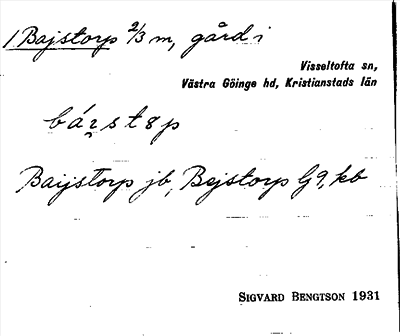 1 Bajstorp 2/3 m, gård i
Visseltofta sn,
Västra Göinge hd, Kristianstads län
Baijstorp jb, Bejstorp G9, kb
SIGVARD BENGTSON 1931